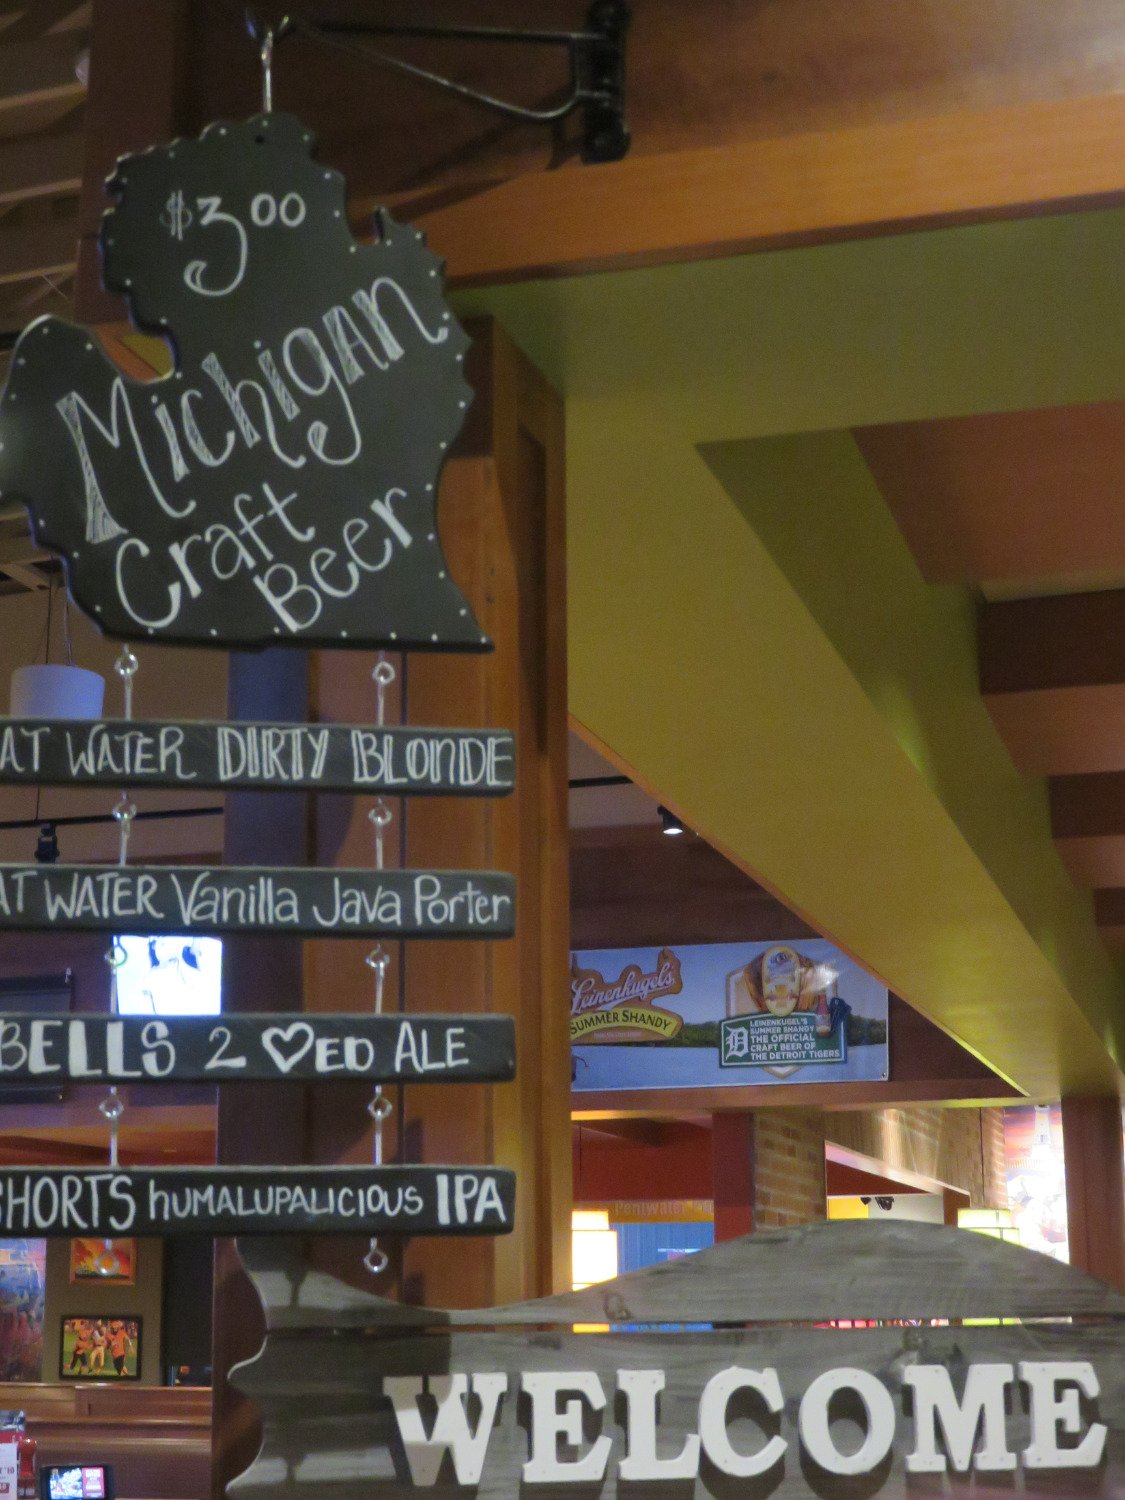 $3.00
Michigan
Craft
Beer
AT WATER DIRTY BLONDE
AT WATER Vanilla Java Porter
BELLS 2 ♡ED ALE
SHORTS HUMALUPALICIOUS IPA
Leinenkugel's
SUMMER SHANDY
D
LEINENKUGEL'S
SUMMER SHANDY
THE OFFICIAL
CRAFT BEER OF
THE DETROIT TIGERS
WELCOME